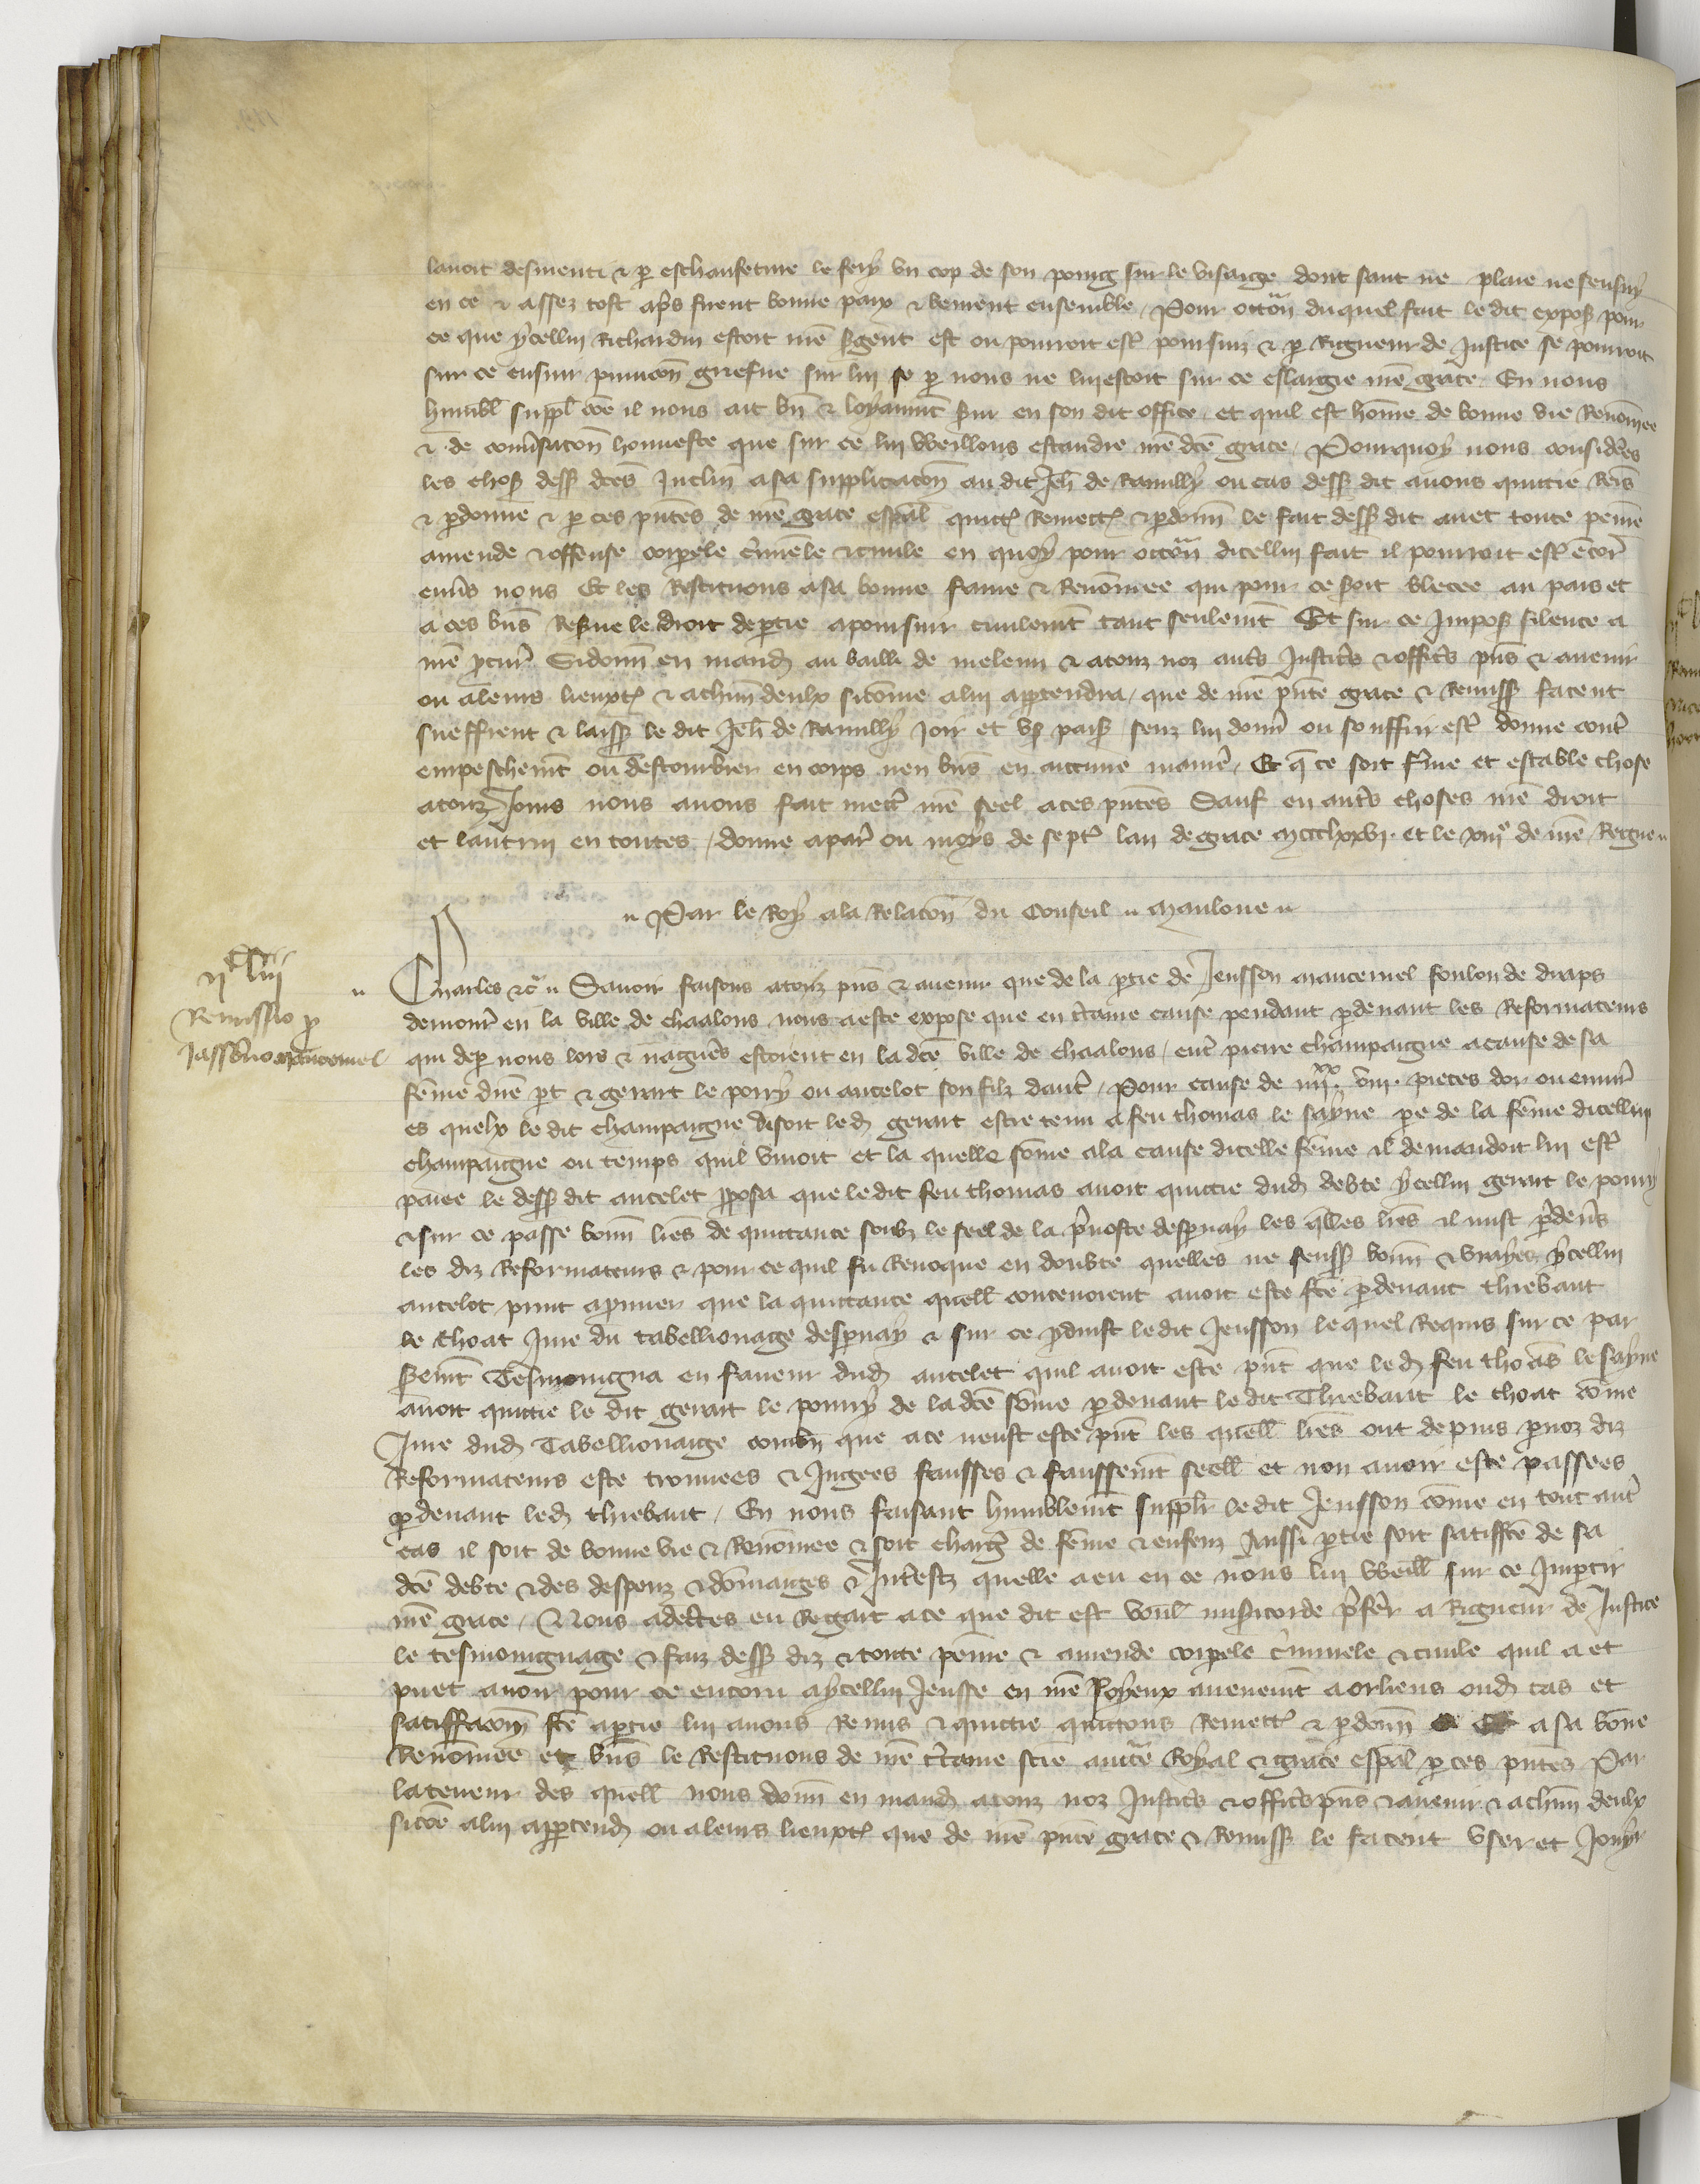 lavoit desmenti & p eschaufeture le fery un cop de son poing sur le visaige dont sanc ne plaie ne sensuy
en ce & assez tost aps furent bonne paix & beurent ensemble, Pour occon duquel fait le dit expos pour
ce que ycellui Richardin estoit nre sgent est ou pourroit estr poursuiz & p Rigueur de Justice se pourroit
sur ce ensuir punicon griefue sur lui se p nous ne lui estoit sur ce eslargie nre grace En nous
humbl suppl coe il nous ait bn & loyaumt sui en son dit office, et quil est home de bonne vie Renomee
& de consacon honneste que sur ce lui vueillons estandre nre dce grace, Pourquoy nous considers
les chos dess dces Inclin a sa supplicacon au dit Jeh de Ramilly ou cas dess dit avons quittie Rems
& pdonne & p ces pntes de nre grace espal quitt Remett & pdonn le fait dess dit avec toute peine
amende & offense corpele cimele & civile en quoy pour occon dicellui fait il pourroit estr encor
envs nous Et les Restituons a sa bonne fame & Renomee qui pour ce soit blecee au pais et
a ces bns Resue le droit de ptie a poursuir civilemt tant seulemt Et sur ce Impos silence a
nre pcur Si donn en mand au bailli de meleun & a touz noz auts Justics & offics pns & avenir
ou a leurs lieuxt & a chun deulx sicome a lui apptendra, que de nre pnte grace & Remiss facent
sueffrent & laiss le dit Jeh de Ramilly joir et us paisi senz lui donn ou souffrir estr donne contr
empeschemt ou destourbier en corps nen bns en aucune manier, Et q ce soit fme et estable chose
a touz Jours nous avons fait mettr nre seel a ces pntes Sauf en auts choses nre droit
et lautrui en toutes, donne a par ou moys de septr lan de grace mccclxxvi. et le xiiie de nre Regne
Par le Roy a la Relacon du Conseil Mauloue
iic liii
Remissio p
Jassono Mancemel
Charles &c Savoir faisons a touz pns & avenir que de la ptie de Jensson Mancemel foulon de draps
demour en la ville de chaalons nous a este expose que en ctaine cause pendant pdevant les Reformateurs
qui de p nous lors & nagues estoient en la dce ville de chaalons, entr pierre champaigne a cause de sa
feme dune pt & gerart le pourry ou ancelot son filz dautr, Pour cause de iiiixx viii. pieces dor ou environ
es quelx le dit champaigne disoit led gerart estre tenu a feu thomas le sayne pe de la feme dicellui
champaigne ou temps quil vivoit et la quelle some a la cause dicelle feme il demandoit lui estr
paiee le dess dit ancelet pposa que ledit feu thomas avoit quittie dud debte ycellui gerart le poury
& sur ce passe bonn lres de quittance soubz le seel de la pvoste despnay les qlles lres il mist pdevs
les diz Reformateurs & pour ce quil fu Revoque en doubte quelles ne feuss bonn & vrayes ycellui
ancelot print a prouver que la quittance quell contenoient avoit este fce pdevant thiebaut
le thoat Jure du tabellionage despnay & sur ce pduist ledit Jensson lequel Requis sur ce par
semt Tesmoingna en faveur dud ancelet quil avoit este pnt que led feu thoas le sayne
avoit quittie le dit gerart le pourry de la dce some pdevant le dit Thiebaut le thoat come
Jure dud Tabellionaige combn que a ce neust este pnt les quell lres ont depuis p noz diz
Reformateurs este trouvees & Jugees fausses & faussemt seell et non avoir este passees
pdevant led thiebaut, En nous faisant humblemt supplr ledit Jensson come en tout autr
cas il soit de bonne vie & Renomee & soit charge de feme & enfenz Aussi ptie soit satiffce de sa
dce debte & des despenz & domaiges & Intestz quelle a eu en ce nous lui vueill sur ce Impetir
nre grace, Nous adectes eu Regart a ce que dit est voul misicorde pfer a Rigueur de Justice
le tesmoingnage & faiz dess diz & toute peine & amende corpele ciminele & civile quil a et
puet avoir pour ce encouru a ycellui Jensse en nre Joyeux avenemt a orliens oud cas et
satiffacon fce a ptie lui avons Remis & quittie quittons Remett & pdonn a sa bone
Renomee et bns le Restituons de nre ctaine scie auctte Royal & grace espal p ces pntes Par
la teneur des quell nous donn en mand a touz noz Justics & offics pns & avenir & a chun deulx
sicoe a lui apptend ou a leurs lieuxt que de nre pnte grace & Remiss le facent user et Jouyr